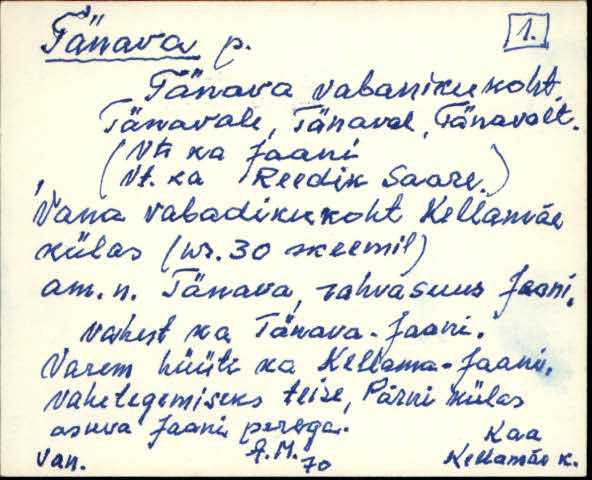 Tänava p. 1.
Tänava vabanikukoht,
Tänavale, Tänaval, Tänavalt.
(Vt. ka Jaani
Vt. ka Reedik Saare.)
Vana vabadikukoht Kellamäe
külas (nr. 30 skeemil)
am. n. Tänava, rahvasuus Jaani,
vahest ka Tänava-Jaani.
Varem hüüti ka Kellama-Jaani,
vahetegemiseks teise, Pärni külas
asuva Jaani perega.
Kaa
Van. A.M. 70 Kellamäe k.